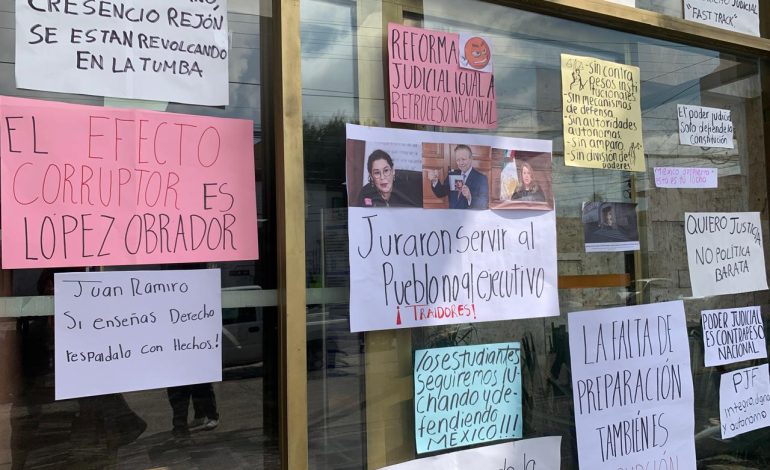 CRESCENCIO REJÓN
SE ESTAN REVOLCANDO
EN LA TUMBA
EL EFECTO
CORRUPTOR ES
LÓPEZ OBRADOR
Juan Ramiro
Si enseñas Derecho
respandalo con Hechos!
REFORMA
JUDICIAL IGUAL A
RETROCESO NACIONAL
Juraron Servir al
Pueblo no al ejecutivo
¡TRAIDORES!
Los estudiantes
seguiremos lu-
chando y de-
fendiendo
MÉXICO!!!
-Sin contra
Pesos insti
tucionales
-Sin mecanismos
de defensa
-Sin autoridades
autonomas
-Sin amparo,
-Sin división de
poderes
JUDICIAL
"FAST TRACK"
El poder judicial
Solo defiende la
Constitución
México despierta
esta es tu lucha
QUIERO JUSTICIA
NO POLÍTICA
BARATA
LA FALTA DE
PREPARACIÓN
TAMBIÉN ES
PODER JUDICIAL
ES CONTRAPESO
NACIONAL
PJF
integro, digno
y autonomo
de la